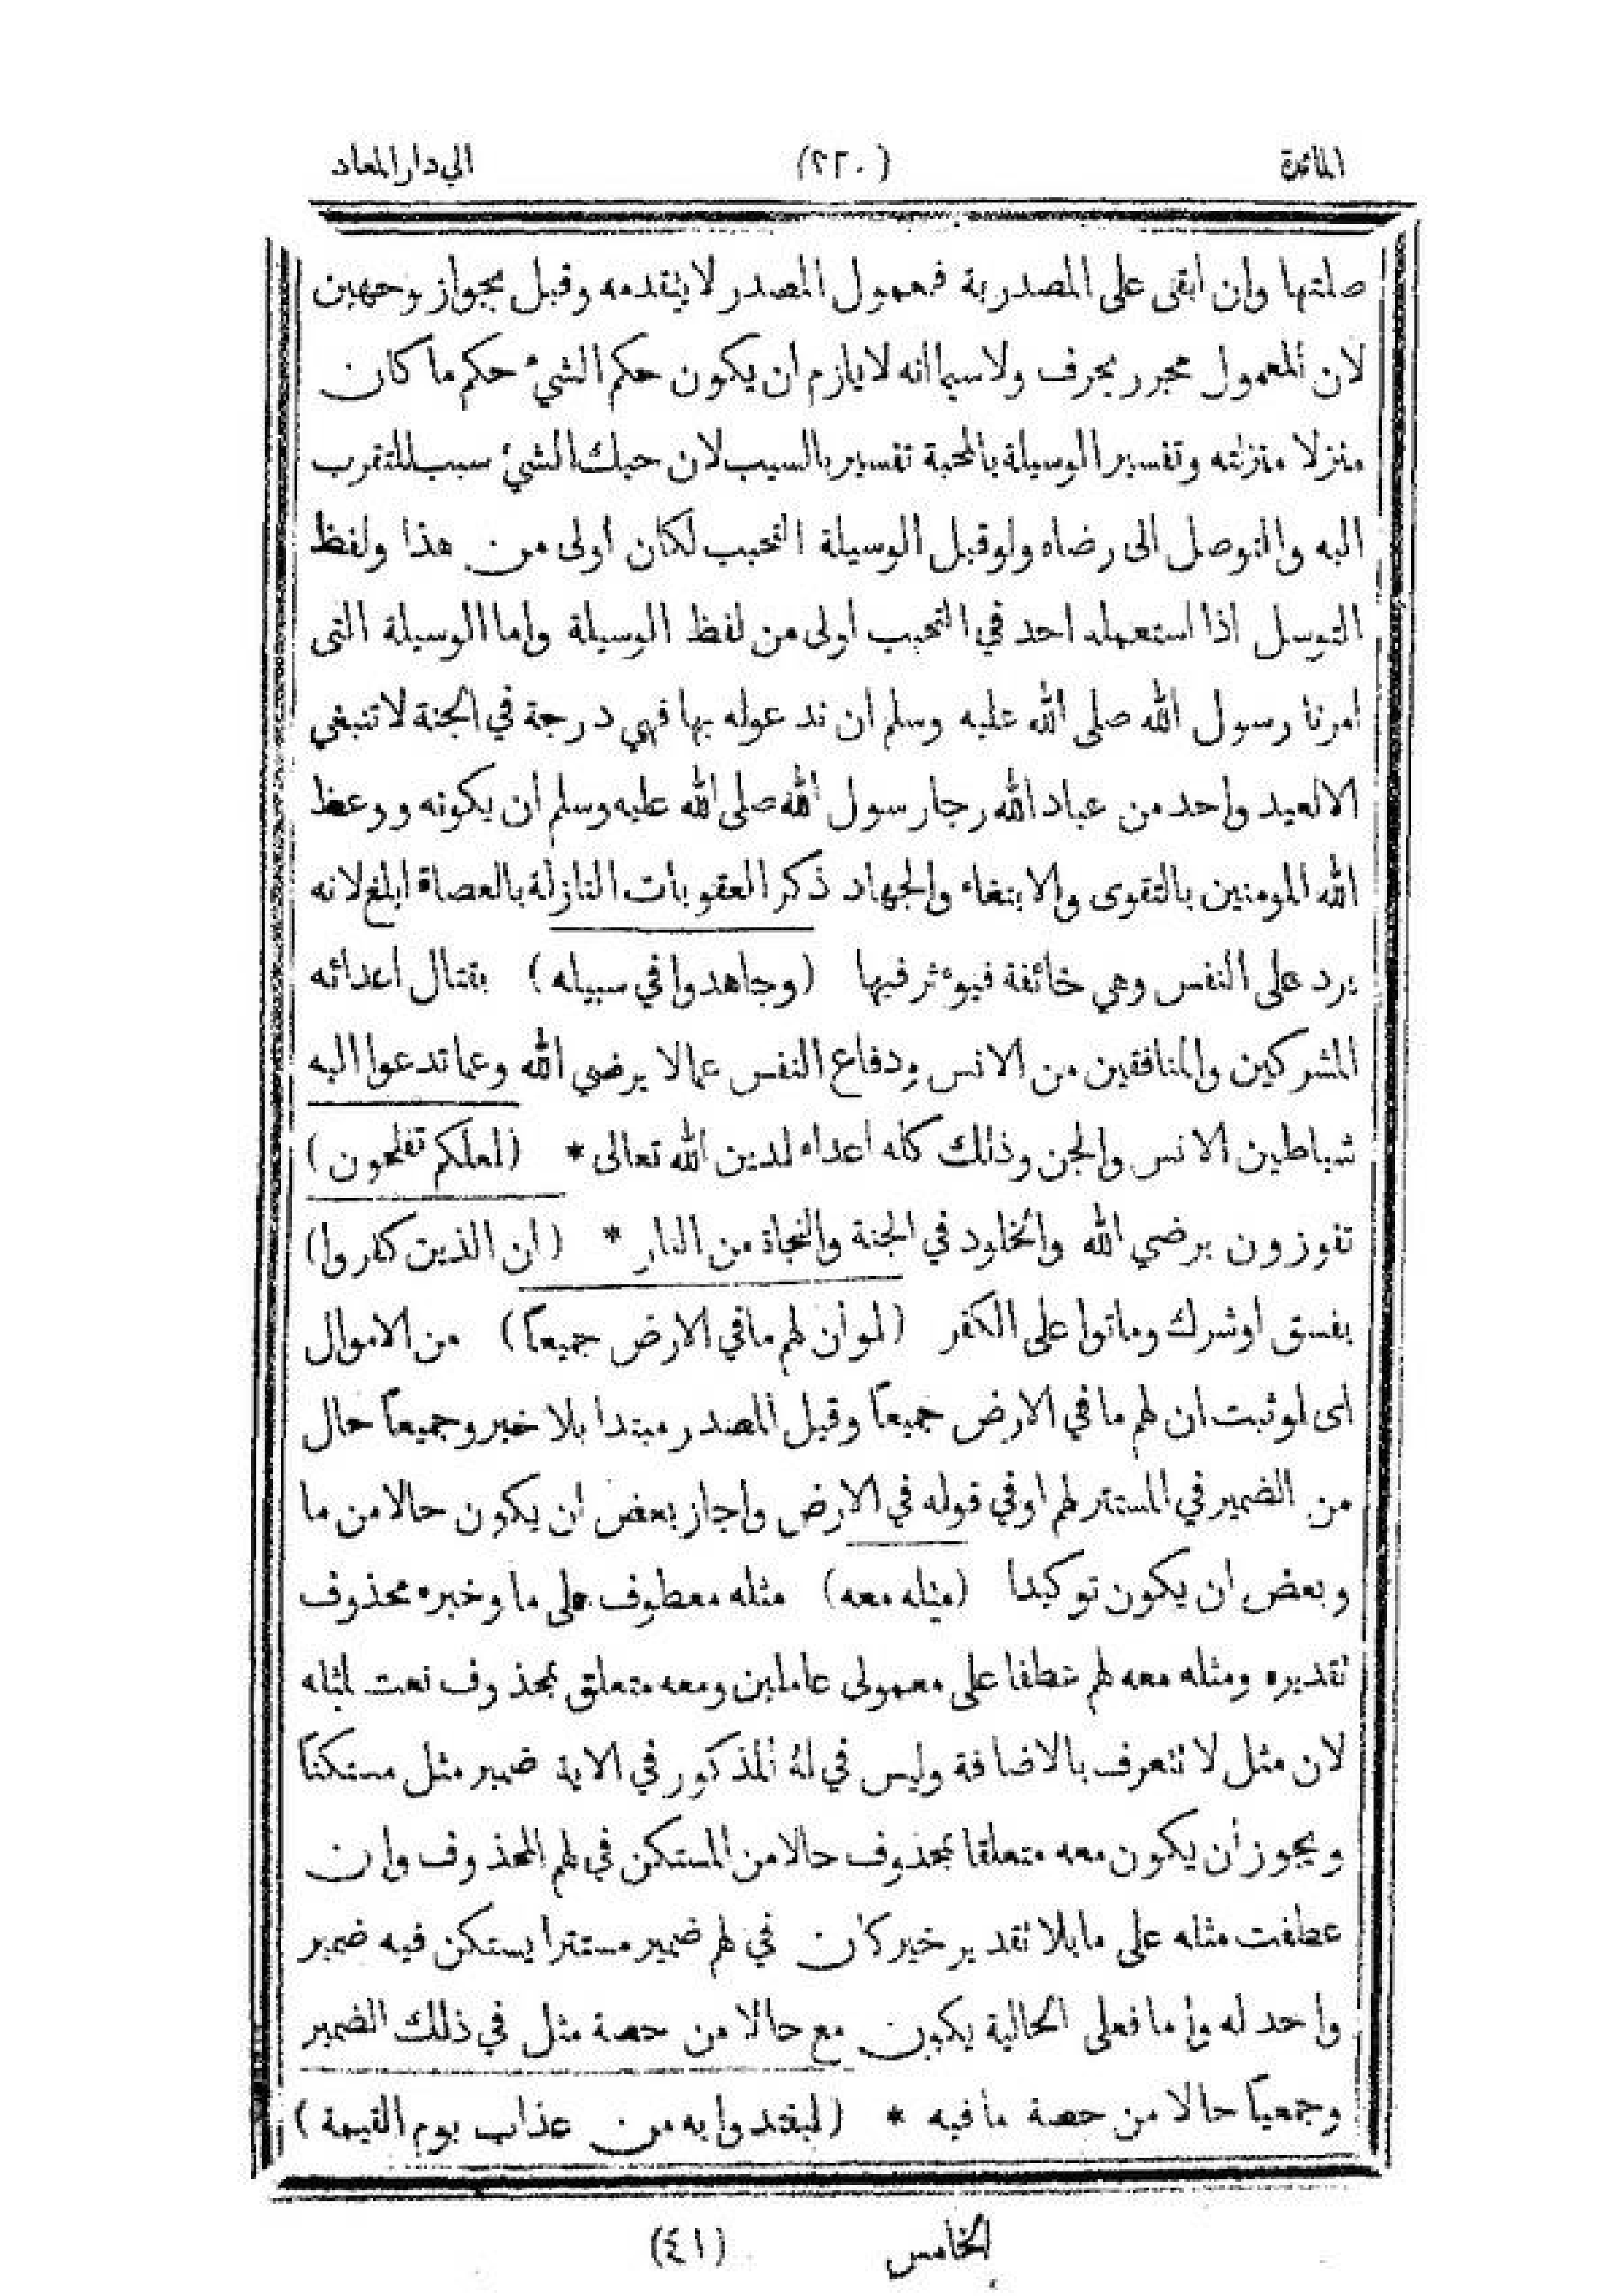 المائدة (٢٢٠) الي دار المعاد
صلتها وان ابقى على المصدرية فمعمول المصدر لا يتقدمه وقيل بجواز وجهين
لان المعمول مجرر بحرف ولا سيما انه لا يلزم ان يكون حكم الشيء حكم ما كان
منزلا منزلته وتفسير الوسيلة بالمحبة تفسير بالسبب لان حبك الشيء سبب للتقرب
اليه والتوصل الى رضاه ولو قيل الوسيلة التحبب لكان أولى من هذا ولفظ
التوسل اذا استعمله احد في التحبب اولى من لفظ الوسيلة واما الوسيلة التى
امرنا رسول الله صلى الله عليه وسلم ان ندعوله بها فهي درجة في الجنة لا تنبغي
الا لعبد واحد من عباد الله رجا رسول الله صلى الله عليه وسلم ان يكونه ووعظ
الله المومنين بالتقوى والابتغاء والجهاد ذكر العقوبات النازلة بالعصاة ابلغ لانه
يرد على النفس وهي خائفة فيوءثر فيها (وجاهدوا في سبيله) بقتال اعدائه
المشركين والمنافقين من الانس ودفاع النفس عما لا يرضي الله وعما تدعوا اليه
شياطين الانس والجن وذلك كله اعداء لدين الله تعالى * (لعلكم تفلحون)
تفوزون برضي الله والخلود في الجنة والنجاة من النار * (ان الذين كفروا)
بفسق او شرك وماتوا على الكفر (لو أن لهم ما في الارض جميعاً) من الاموال
اى لو ثبت ان لهم ما في الارض جميعاً وقيل المصدر مبتدا بلا خبر وجميعاً حال
من الضمير في المستتر لهم او في قوله في الارض واجاز بعض ان يكون حالا من ما
وبعض ان يكون توكيدا (مثله معه) مثله معطوف على ما وخبره محذوف
تقديره ومثله معه لهم عطفا على معمولى عاملين ومعه متعلق بمحذوف نعت لمثله
لان مثل لا تتعرف بالاضافة وليس في له المذكور في الاية ضمير مثل مستكناً
ويجوز أن يكون معه متعلقا بمحذوف حالا من المستكن في لهم المحذوف وان
عطفت مثله على ما بلا تقدير خبر كان في لهم ضمير مستترا يستكن فيه ضمير
واحد له وإما فعلى الحالية يكون مع حالا من حصة مثل في ذلك الضمير
وجمعياً حالا من حصة ما فيه * (ليفتدوا به من عذاب يوم القيمة)
الخامس (٤١)